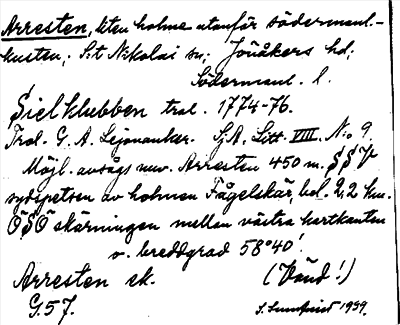 Arresten, liten holme utanför södermanl.-
kusten; S:t Nikolai sn; Jönåkers hd;
Södermanl. l.
Sielklubben tral. 1774-76.
Tral. G. A. Lejonanker. Sj.A. Litt. VIII. N:o 9
Möjl. avsågs nuv. Arresten 450 m. SSV
sydspetsen av holmen Fågelskär, bel. 2,2 km.
OSO skärningen mellan västra kartkanten
o. breddgrad 58°40'.
Arresten sk. (Vänd!)
G.57. 1939.